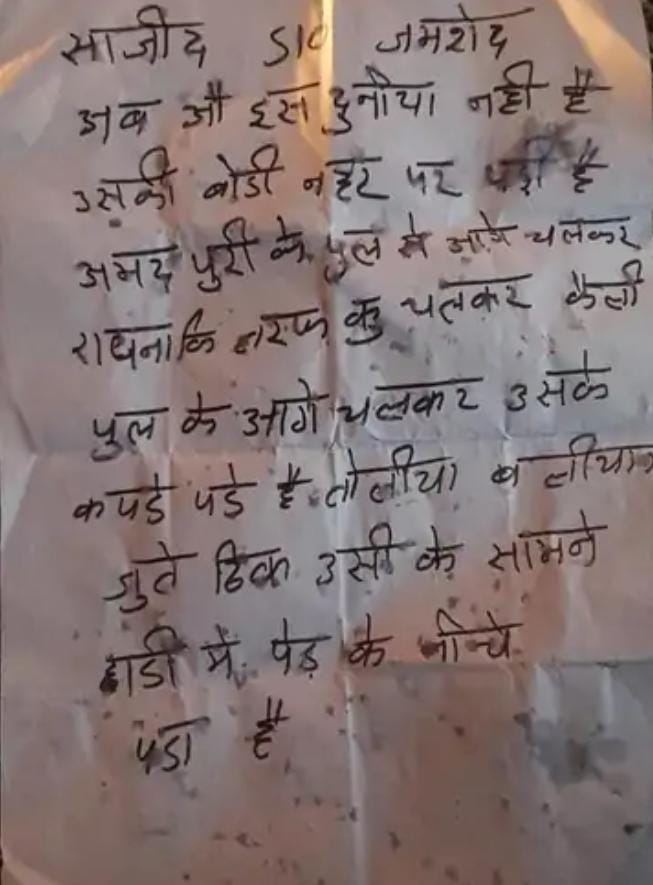 साजीद S10 जमशेद
अब औ इस दुनीया नही है
उसकी बोडी नहर पर पडी है
अमद पुरी के पुल से आगे चलकर
राधनाकि तरफ कु चलकर कैली
पुल के आगे चलकर उसके
कपडे पडे है तोलीया ब
जुते ठिक उसी के सामने
हाडी मे पेड़ के नीचे
पडा है